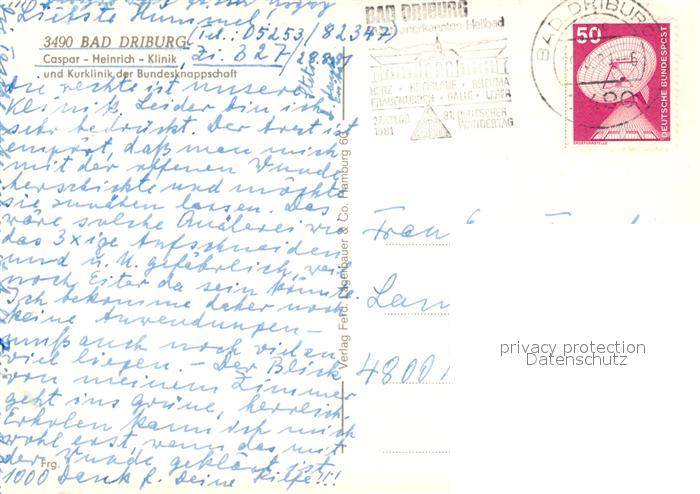 Liebste Hummel!
3490 BAD DRIBURG
(Tel.: 05253/82347)
Caspar - Heinrich - Klinik
Zi. 327/
28.8.81
und Kurklinik der Bundesknappschaft
die rechte ist unsere
Klinik. Leider bin ich
sehr bedrückt. Der Arzt ist
empört, daß man mich
mit der offenen Wunde
herschickte und möchte
sie zunähen lassen. Das
wäre solche Quälerei wie
das 3xige Aufschneiden
und u. U. gefährlich, weil
noch Eiter da sein könnte.
Ich bekomme daher noch
keine Anwendungen –
muß auch noch viel
viel liegen. – Der Blick
von meinem Zimmer
geht ins Grüne, herrlich.
Erholen kann ich mich
wohl erst, wenn das mit
der Wunde geklärt ist.
1000 Dank f. Deine Hilfe!!!
Frg.
Verlag Ferd. Lagerbauer & Co. Hamburg 60
BAD DRIBURG
anerkanntes Heilbad
HERZ KREISLAUF RHEUMA
FRAUENLEIDEN GALLE LEBER
27-31.08.
1981
81. DEUTSCHER
WANDERTAG
BAD DRIBURG
50
DEUTSCHE BUNDESPOST
ERDEFUNKSTELLE
Frau
4800
privacy protection
Datenschutz